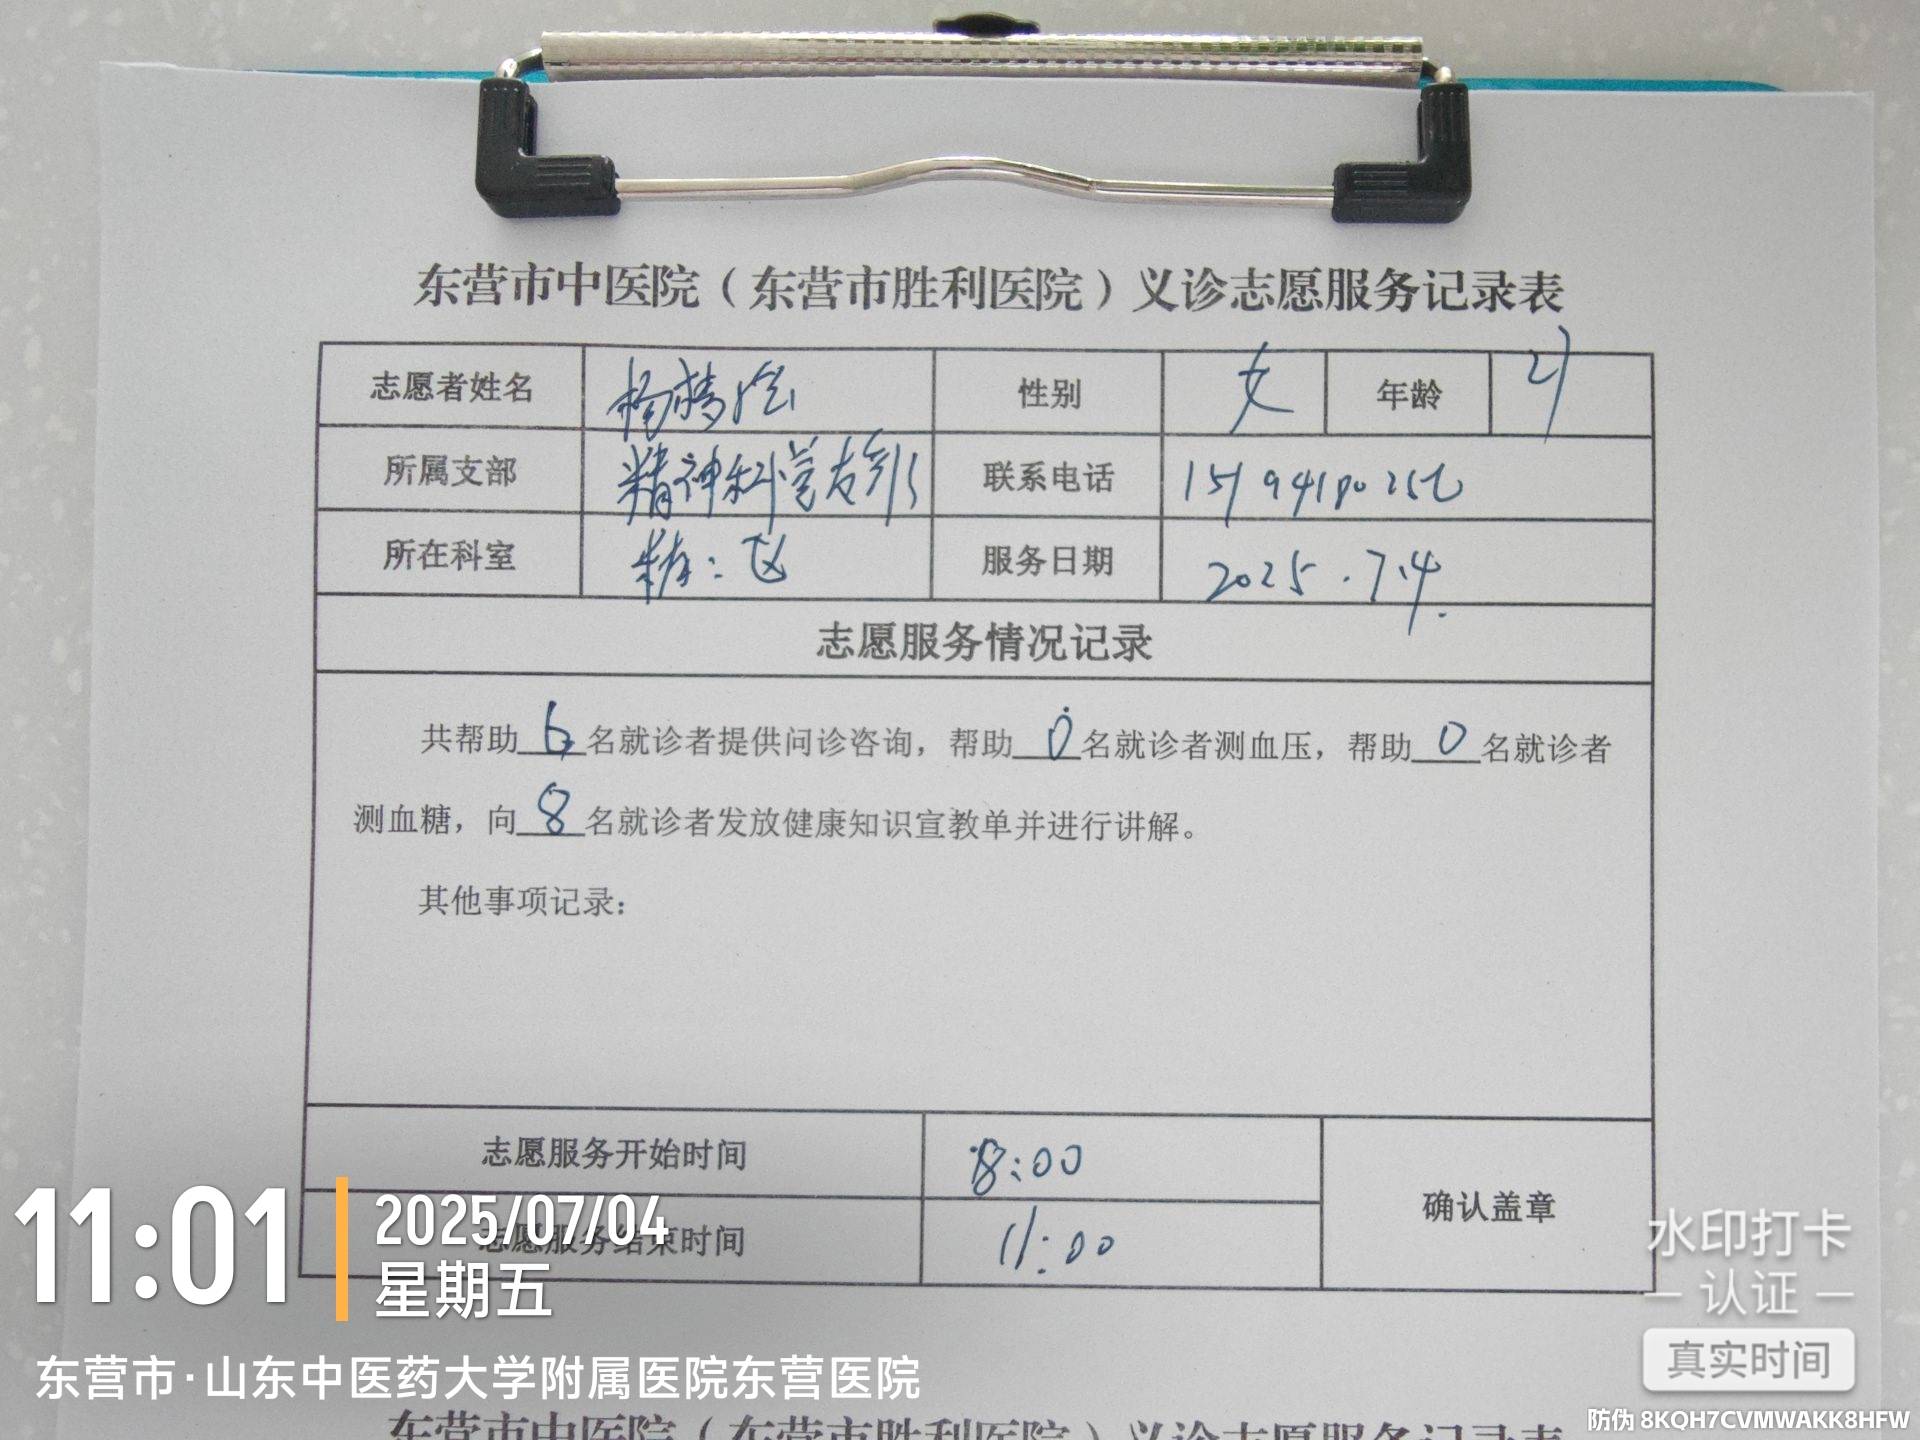 东营市中医院（东营市胜利医院）义诊志愿服务记录表
志愿者姓名 杨梦 性别 女 年龄 21
所属支部 精神科党支部 联系电话
所在科室 服务日期 2025.7.4.
志愿服务情况记录
共帮助6名就诊者提供问诊咨询，帮助0名就诊者测血压，帮助0名就诊者
测血糖，向8名就诊者发放健康知识宣教单并进行讲解。
其他事项记录：
志愿服务开始时间 8:00
确认盖章
志愿服务结束时间 11:00
11:01
2025/07/04
星期五
东营市·山东中医药大学附属医院东营医院
水印打卡
认证
真实时间
防伪 8KQH7CVMWAKK8HFW
东营市中医院（东营市胜利医院）义诊志愿服务记录表